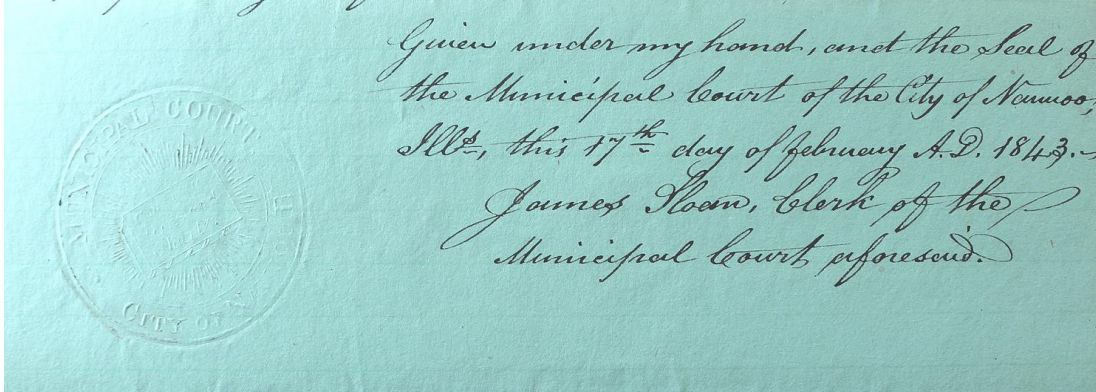 Given under my hand, and the Seal of
the Municipal Court of the City of Nauvoo,
Ills, this 17th day of february A.D. 1843.
James Sloan, Clerk of the
Municipal Court aforesaid.
COURT
CITY OF